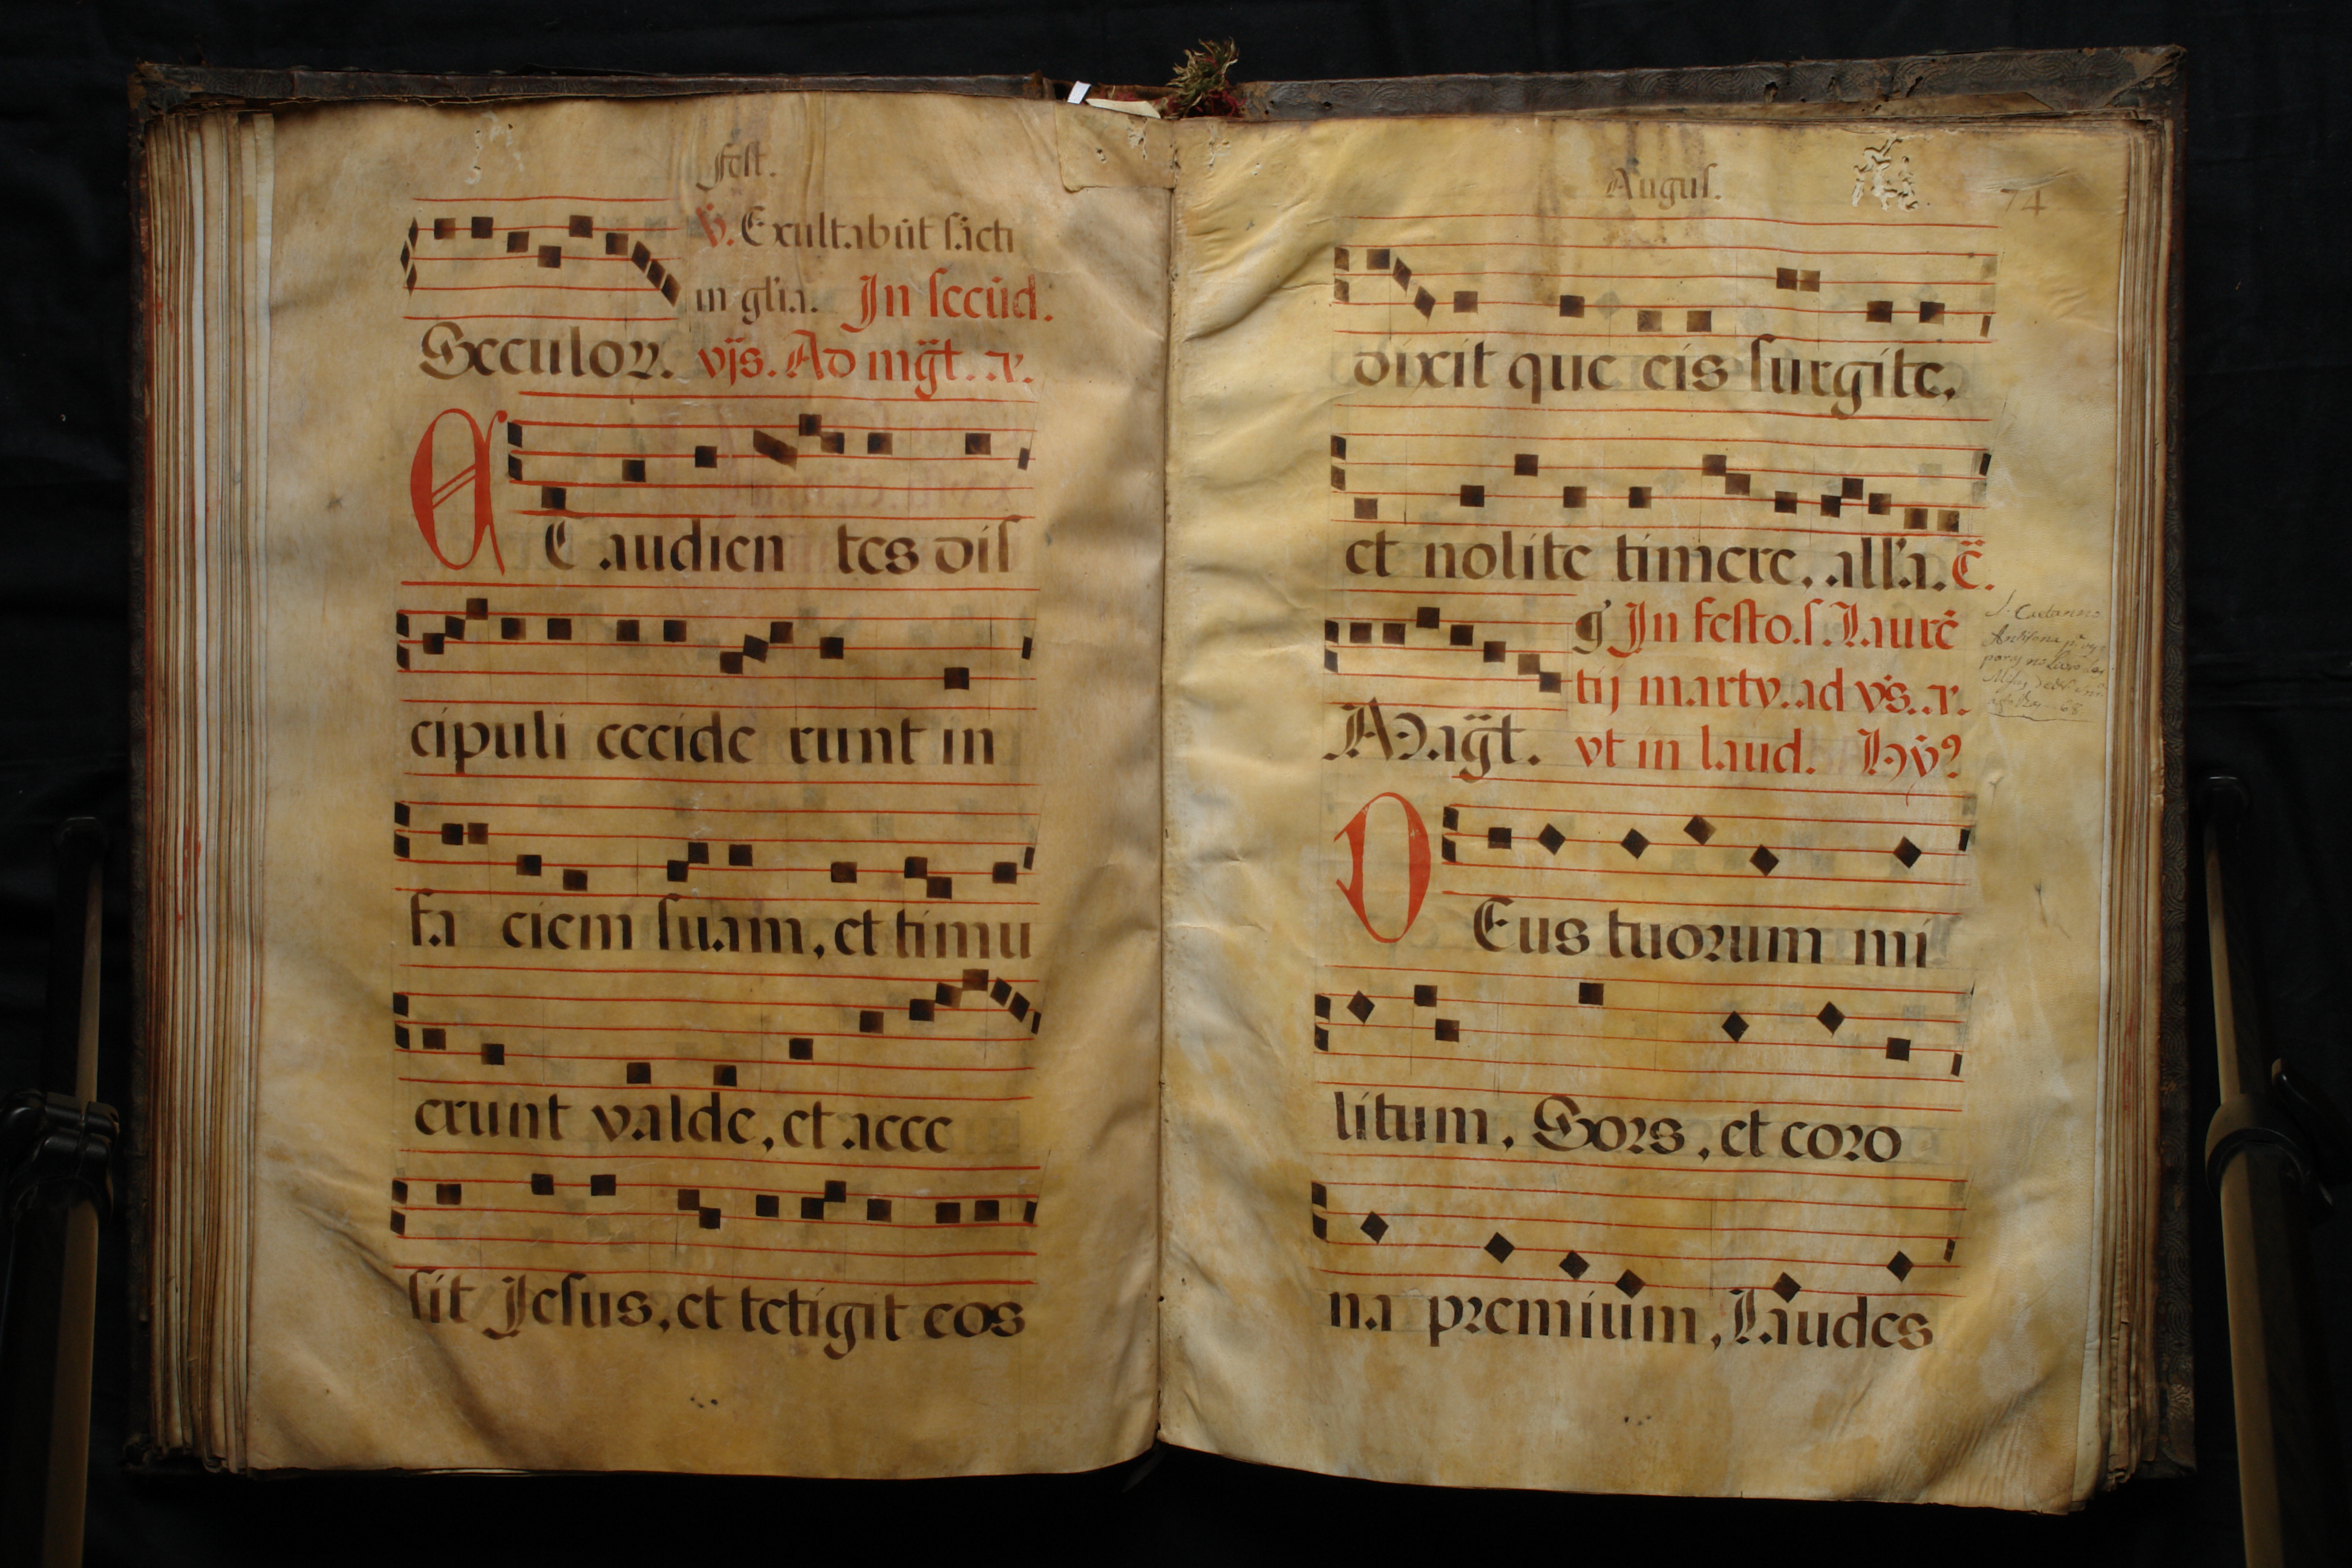 Fest.
℣. Exultabūt sācti
in gl'ia. In secūd.
Seculoꝝ. vp̄s. Ad mḡt. a.
ET audien tes dis
cipuli cecide runt in
fa ciem suam, et timu
erunt valde, et acce
sit Jesus, et tetigit eos
Augus. 74
dixit que eis surgite,
et nolite timere, all'a. E.
g In festo. s. Laurē
tij marty. ad vs̄. a.
Mag̈t. vt in laud. Hy̌9
DEus tuorum mi
litum, Sors, et coro
na premium, Laudes
S. Caetanno
Antifona